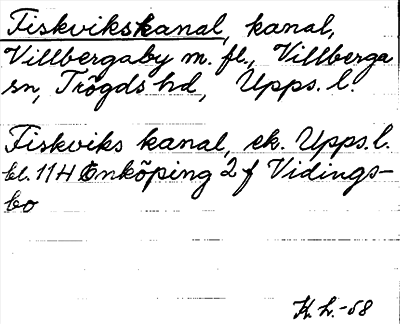 Fiskvikskanal, kanal,
Villbergaby m. fl., Villberga
sn, Trögds hd, Upps. l.
Fiskviks kanal, ek. Upps. l.
bl. 11 H Enköping 2 f Vidings-
bo
K. L. -58